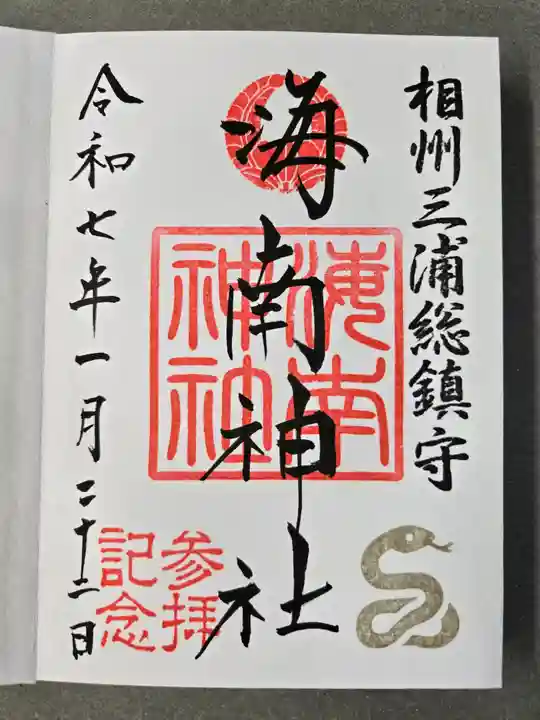 相州三浦総鎮守
海南神社
海南
神社
令和七年一月二十二日
参拝
記念